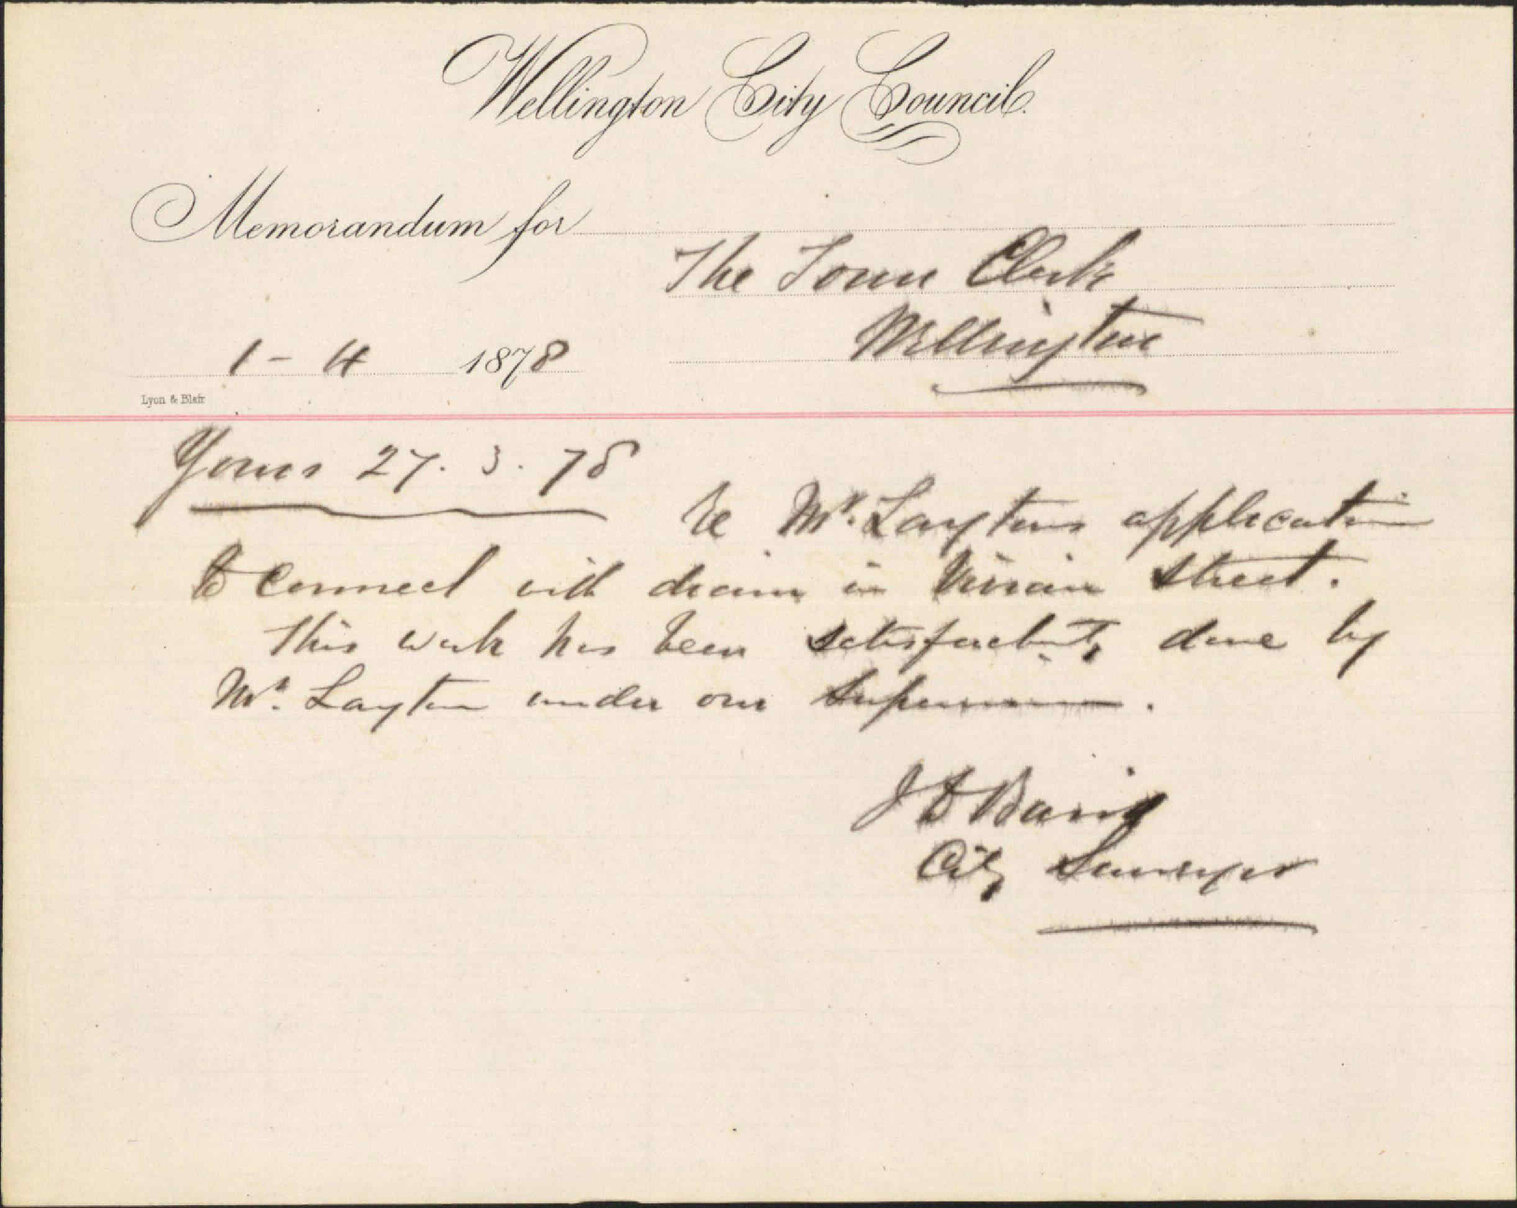 Wellington City Council.
Memorandum for
The Town Clerk
Wellington
1 - 4 1878
Lyon & Blair
Yours 27. 3. 78
re Mr. Laytons application
to connect with drain in Vivian Street.
This work has been satisfactorily done by
Mr. Layton under our supervision.
J D Baird
City Surveyor